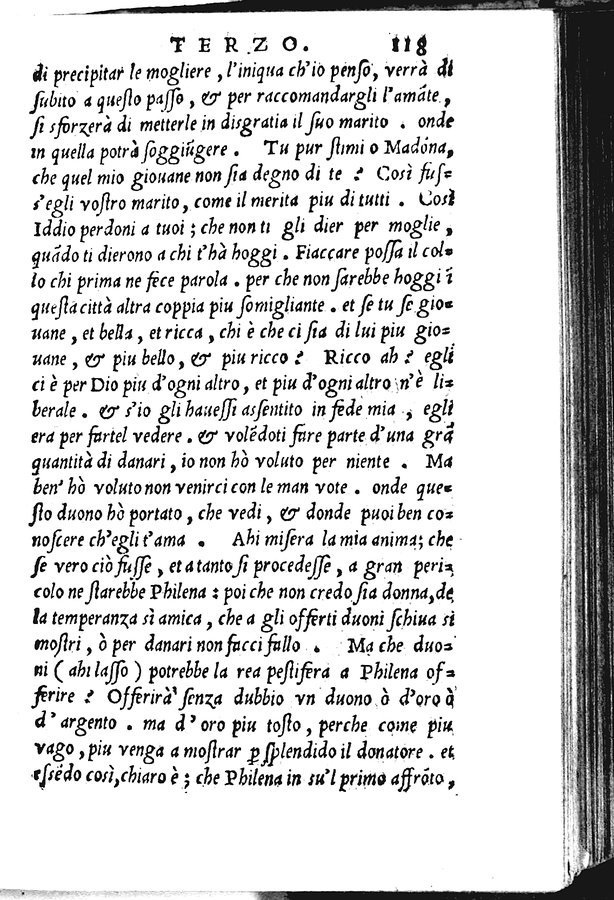 TERZO. 118
di precipitar le mogliere, l'iniqua ch'io penso, verrà di
subito a questo passo, & per raccomandargli l'amãte,
si sforzerà di metterle in disgratia il suo marito. onde
in quella potrà soggiũgere. Tu pur stimi o Madõna,
che quel mio giouane non sia degno di te? Così fus=
s'egli vostro marito, come il merita piu di tutti. Così
Iddio perdoni a tuoi; che non ti gli dier per moglie,
quãdo ti dierono a chi t'hà hoggi. Fiaccare possa il col=
lo chi prima ne fece parola. per che non sarebbe hoggi ĩ
questa città altra coppia piu somigliante. et se tu se gio=
uane, et bella, et ricca, chi è che ci sia di lui piu gio=
uane, & piu bello, & piu ricco? Ricco ah? egli
ci è per Dio piu d'ogni altro, et piu d'ogni altro n'è li=
berale. & s'io gli hauessi assentito in fede mia, egli
era per fartel vedere. & volẽdoti fare parte d'una grã
quantità di danari, io non hò voluto per niente. Ma
ben' hò voluto non venirci con le man vote. onde que=
sto duono hò portato, che vedi, & donde puoi ben co=
noscere ch'egli t'ama. Ahi misera la mia anima; che
se vero ciò fusse, et a tanto si procedesse, a gran peri=
colo ne starebbe Philena: poi che non credo sia donna, de
la temperanza sì amica, che a gli offerti duoni schiua si
mostri, ò per danari non facci fallo. Ma che duo=
ni (ahi lasso) potrebbe la rea pestifera a Philena of=
ferire? Offerirà senza dubbio vn duono ò d'oro ò
d'argento. ma d'oro piu tosto, perche come piu
vago, piu venga a mostrar ꝑ splendido il donatore. et
essẽdo così, chiaro è; che Philena in su'l primo affrõto,